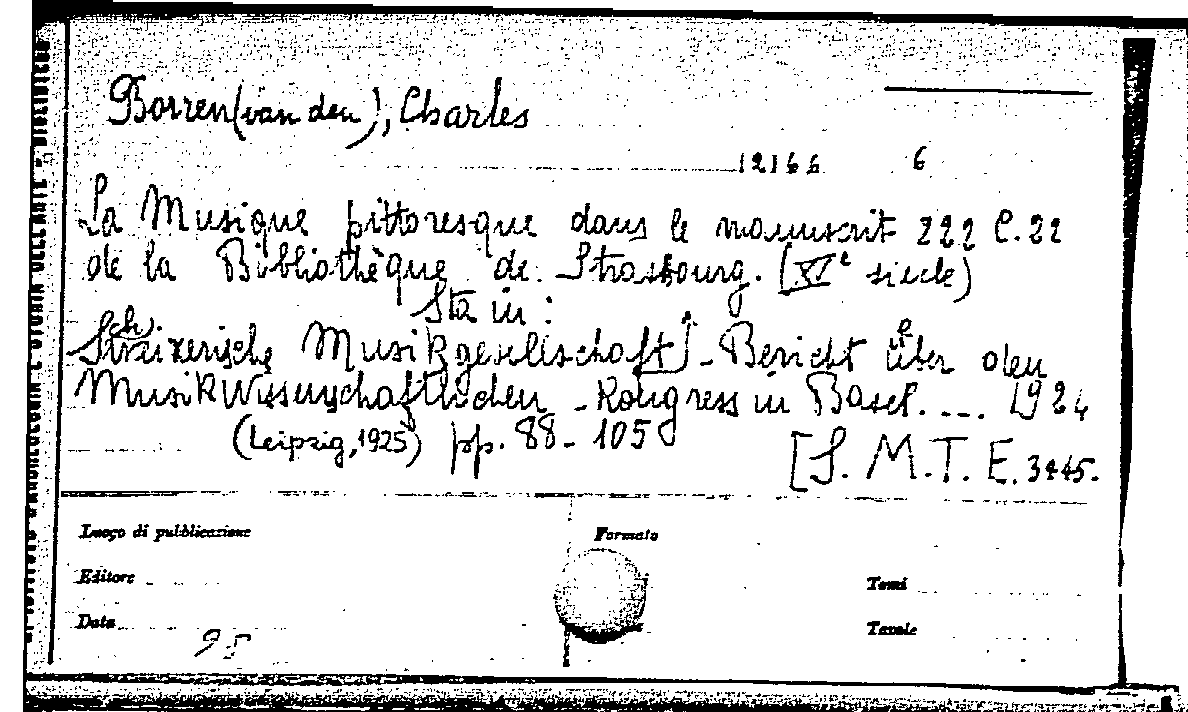 Borren (van den), Charles
12166 6
La Musique pittoresque dans le manuscrit 222 C. 22
de la Bibliothèque de Strasbourg. (XVe siècle)
Sta in:
Schweizerische Musikgesellschaft] - Bericht über den
Musikwissenschaftlichen - Kongress in Basel .... 1924
(Leipzig, 1925) pp. 88 - 105
[S. M. T. E. 3445.
Luogo di pubblicazione
Formato
Editore
Tomi
Data
Tavole
95